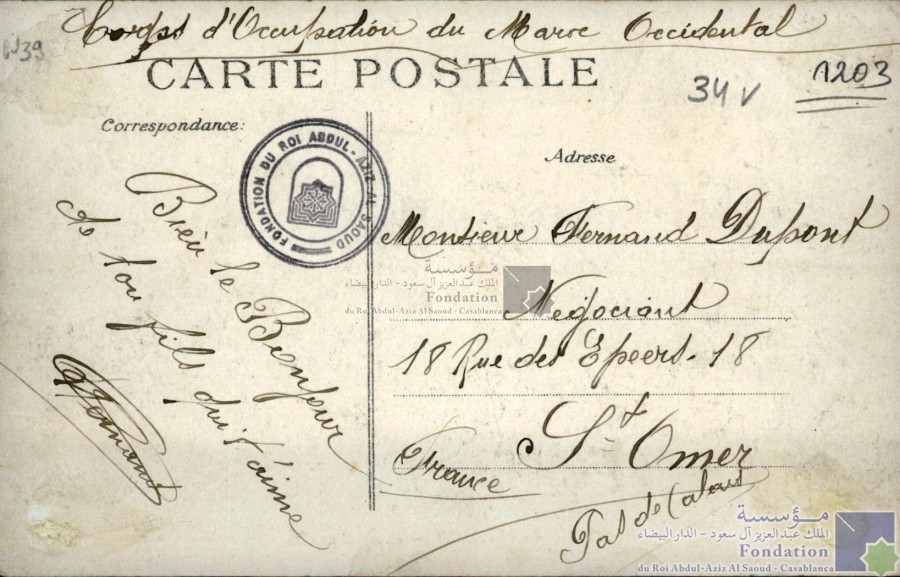 Corps d'Occupation du Maroc Occidental
CARTE POSTALE
34 v
1203
Correspondance:
Adresse
FONDATION DU ROI ABDUL-AZIZ AL SAOUD
Bien le Bonjour
de ton fils qui t'aime
Monsieur Fernand Dupont
Négociant
18 Rue des Epeers - 18
St Omer
France
Pas de Calais
مؤسسة
الملك عبد العزيز آل سعود - الدار البيضاء
Fondation
du Roi Abdul-Aziz Al Saoud - Casablanca
مؤسسة
الملك عبد العزيز آل سعود - الدار البيضاء
Fondation
du Roi Abdul-Aziz Al Saoud - Casablanca